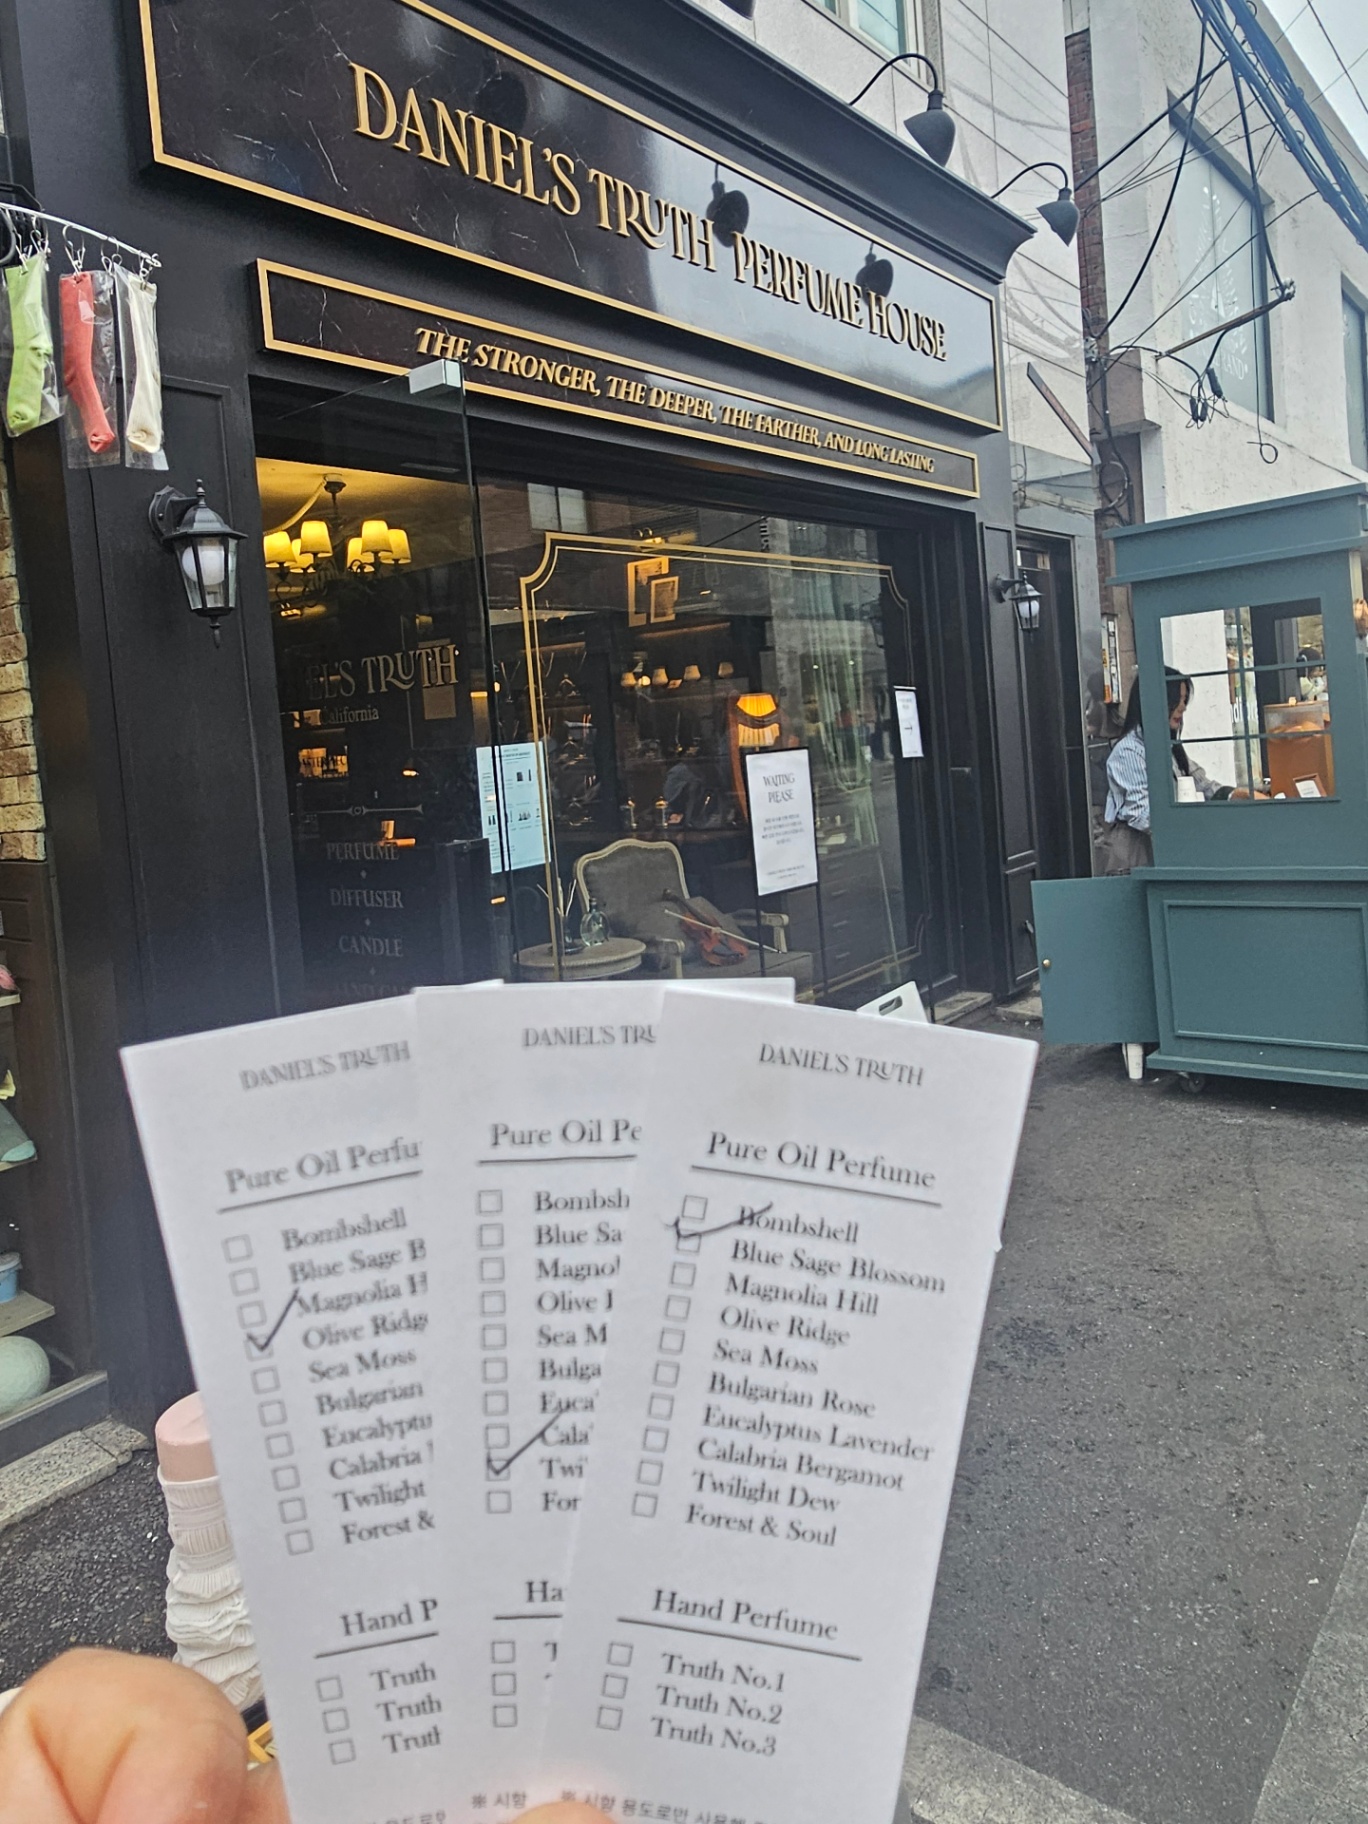 DANIEL'S TRUTH PERFUME HOUSE
THE STRONGER, THE DEEPER, THE FARTHER, AND LONG LASTING
EL'S TRUTH
California
PERFUME
DIFFUSER
CANDLE
WAITING
PLEASE
DANIEL'S TRUTH
Pure Oil Perfu
Bombshell
Blue Sage B
Magnolia H
Olive Ridge
Sea Moss
Bulgarian
Eucalyptu
Calabria
Twilight
Forest &
Hand P
Truth
Truth
Truth
DANIEL'S TRU
Pure Oil Pe
Bombsh
Blue Sa
Magnol
Olive
Sea M
Bulga
Euca
Cala
Twi
For
Ha
※ 시향
DANIEL'S TRUTH
Pure Oil Perfume
Bombshell
Blue Sage Blossom
Magnolia Hill
Olive Ridge
Sea Moss
Bulgarian Rose
Eucalyptus Lavender
Calabria Bergamot
Twilight Dew
Forest & Soul
Hand Perfume
Truth No.1
Truth No.2
Truth No.3
※ 시향 용도로만